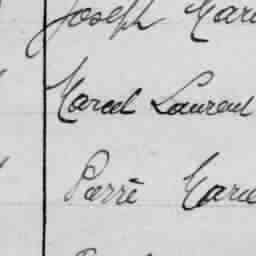 Joseph Mari
Marcel Laurent
Pierre Marie